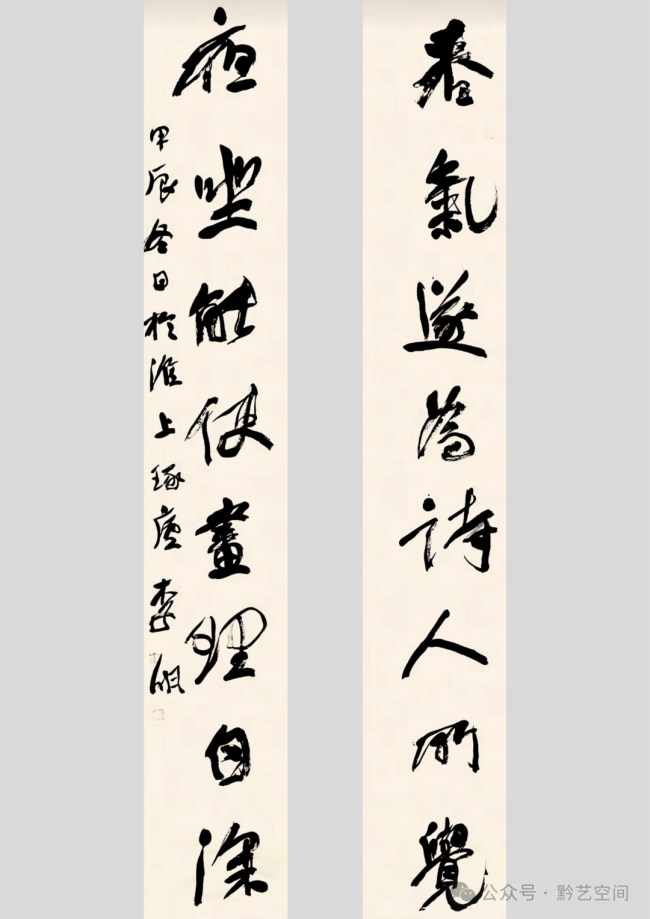 春氣遂為詩人所覺
夜坐能使畫理自深
甲辰冬日於淮上琢廬 李
公众号 · 黔艺空间